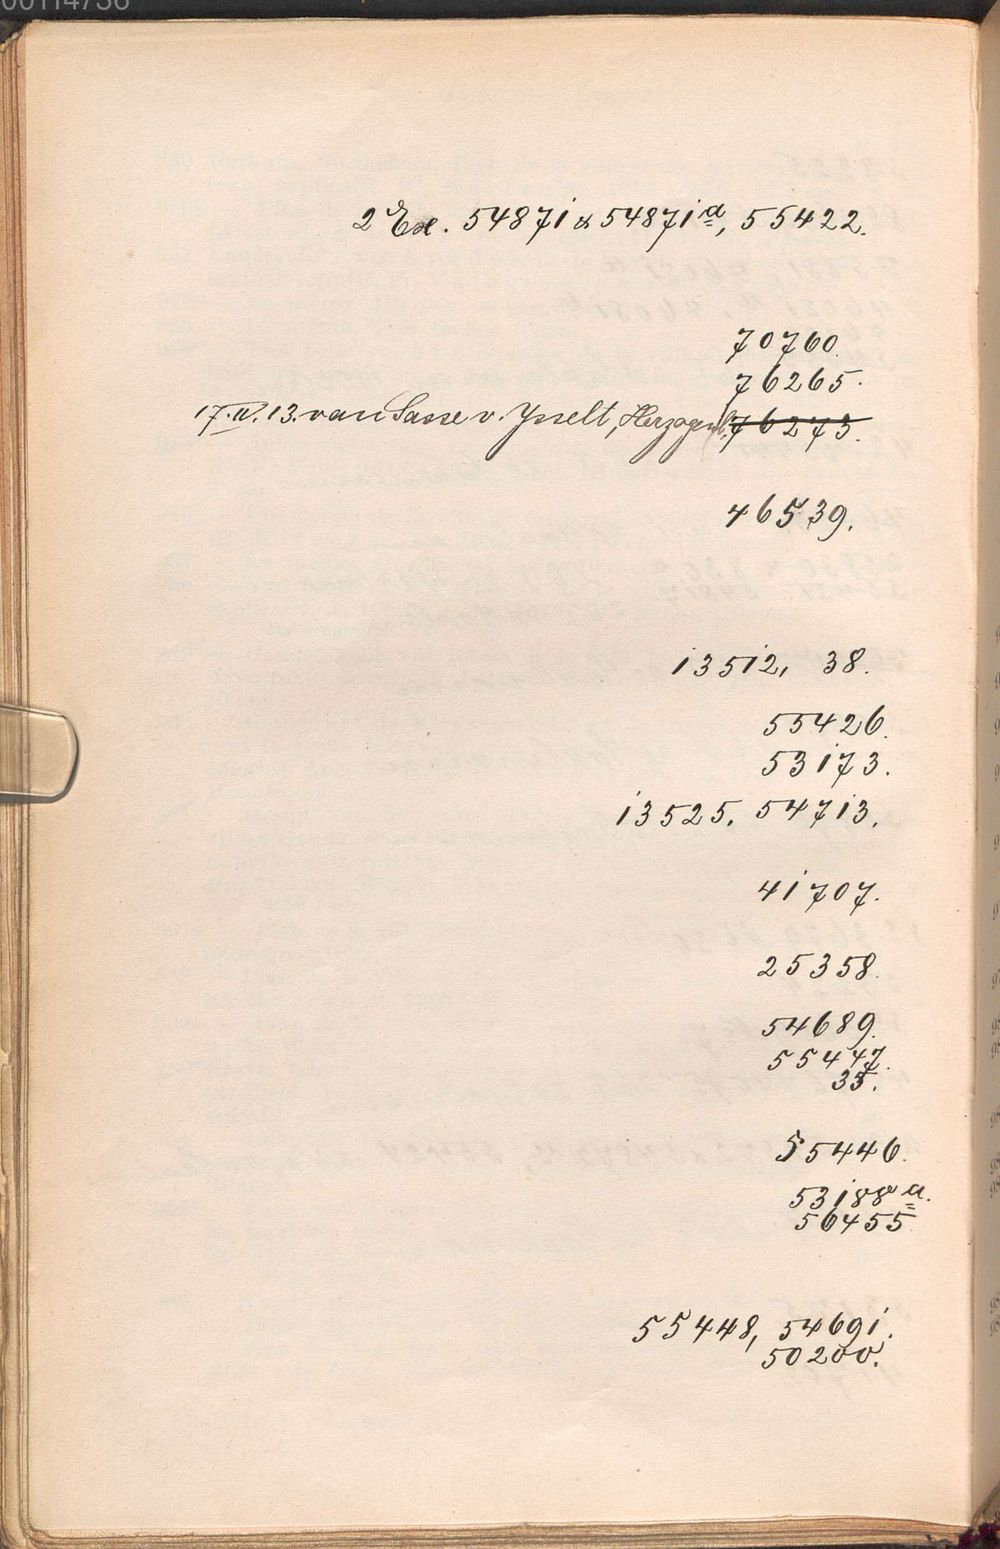 00114736
2 Ex. 54871 & 54871a, 55422.
70760.
76265.
17.II.13. van Sasse v. Ysselt, 76273.
46539.
13512, 38.
55426.
53173.
13525. 54713.
41707.
25358.
54689.
55447.
35.
55446.
53188a.
56455
55448, 54691.
50200.